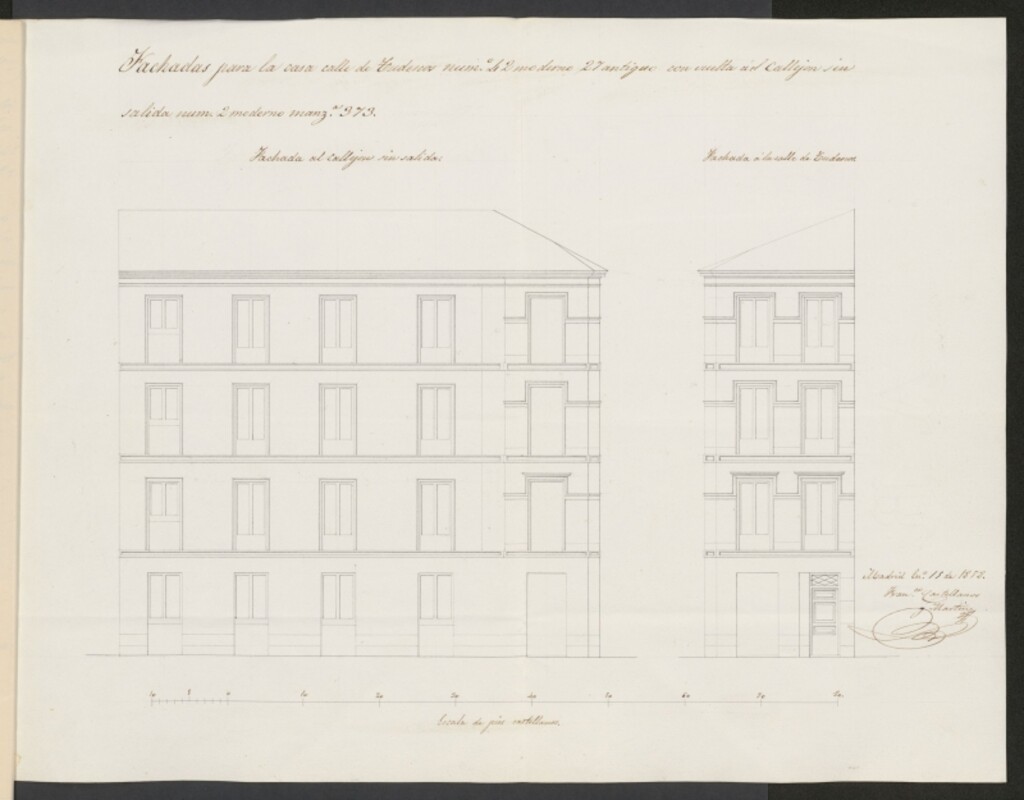 Fachadas para la casa calle de Tudescos num.º 42 moderno 27 antiguo con vuelta al Callejon sin
salida num. 2 moderno manz.ª 373.
Fachada al callejon sin salida.
Fachada á la calle de Tudescos
Madrid En.º 18 de 1855.
Fran.co Castellanos
y Martinez
10 5 0 10 20 30 40 50 60 70 80
Escala de pies castellanos